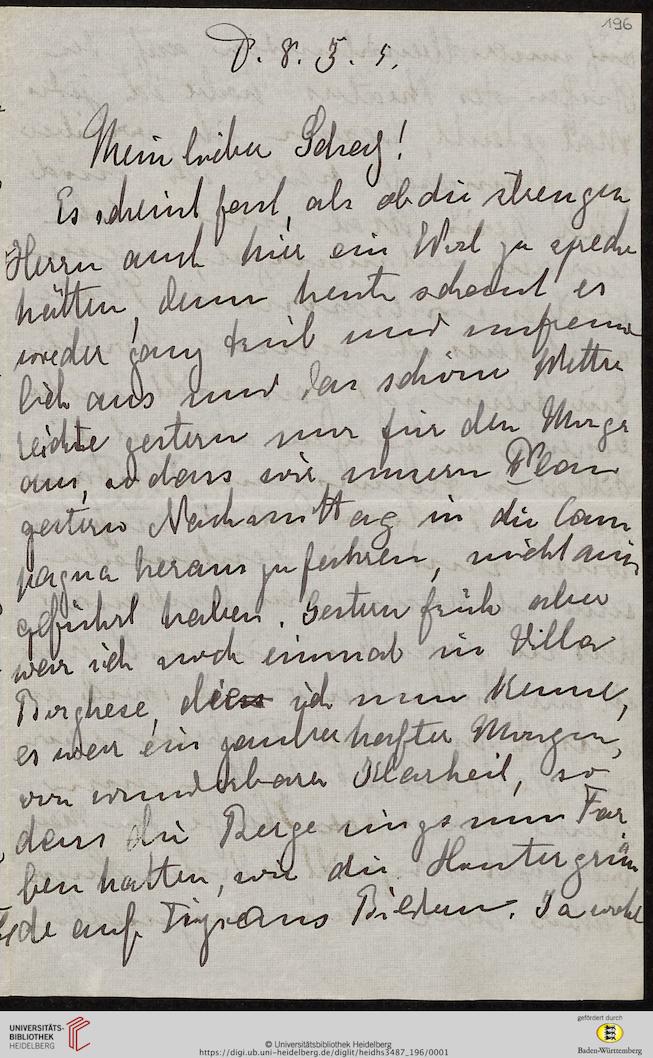 196
D. 8. 5. 5.
Mein lieber Schatz!
Es scheint fast, als ob die strengen
Herrn auch hier ein Wort zu spreche
hätten, denn heute schaut es
wieder ganz trüb und unfreund
lich aus und das schöne Wetter
reichte gestern nur für den Morge
aus, so dass wir unsern Plan
gestern Nachmittag in die Cam
pagna heraus zu fahren, nicht aus
geführt haben. Gestern früh aber
war ich noch einmal in Villa
Borghese, die ich nun kenne,
es war ein zauberhafter Morgen,
von wunderbarer Klarheit, so
dass die Berge rings nun Far
ben hatten, wie die Hintergrün
de auf Tizians Bildern. Ja wohl
UNIVERSITÄTS-
BIBLIOTHEK
HEIDELBERG
© Universitätsbibliothek Heidelberg
https://digi.ub.uni-heidelberg.de/diglit/heidhs3487_196/0001
gefördert durch
Baden-Württemberg